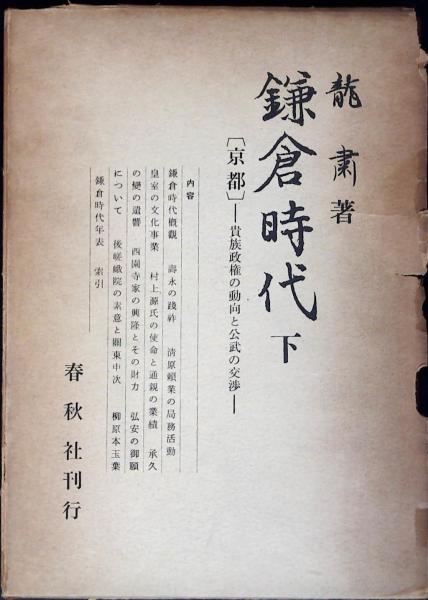 龍肅著
鎌倉時代下
［京都］―貴族政権の動向と公武の交渉―
内容
鎌倉時代概觀　壽永の踐祚　清原頼業の局務活動
皇室の文化事業　村上源氏の使命と通親の業績　承久
の變の遺響　西園寺家の興隆とその財力　弘安の御願
について　後嵯峨院の素意と關東申次　柳原本玉葉
鎌倉時代年表　索引
春秋社刊行